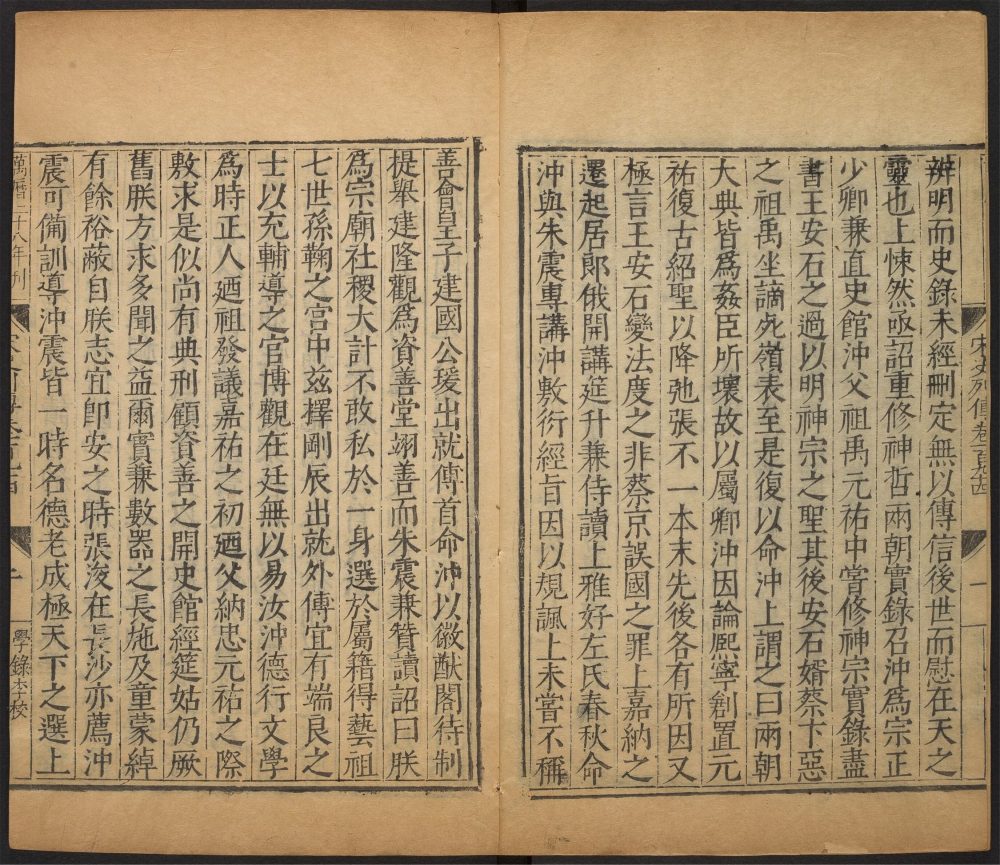 宋史列傳卷一百九十四
辨明而史錄未經刪定無以傳信後世而慰在天之
靈也上悚然亟詔重修神哲兩朝實錄召沖爲宗正
少卿兼直史館沖父祖禹元祐中嘗修神宗實錄盡
書王安石之過以明神宗之聖其後安石婿蔡卞惡
之祖禹坐謫死嶺表至是復以命沖上謂之曰兩朝
大典皆爲姦臣所壞故以屬卿沖因論熙寧創置元
祐復古紹聖以降弛張不一本末先後各有所因又
極言王安石變法度之非蔡京誤國之罪上嘉納之
遷起居郎俄開講筵升兼侍讀上雅好左氏春秋命
沖與朱震專講沖敷衍經旨因以規諷上未嘗不稱
善會皇子建國公瑗出就傅首命沖以徽猷閣待制
提舉建隆觀爲資善堂翊善而朱震兼贊讀詔曰朕
爲宗廟社稷大計不敢私於一身選於屬籍得藝祖
七世孫鞠之宮中茲擇剛辰出就外傅宜有端良之
士以充輔導之官博觀在廷無以易汝沖德行文學
爲時正人廼祖發議嘉祐之初廼父納忠元祐之際
敷求是似尚有典刑顧資善之開史館經筵姑仍厥
舊朕方求多聞之益爾實兼數器之長施及童蒙綽
有餘裕蔽自朕志宜卽安之時張浚在長沙亦薦沖
震可備訓導沖震皆一時名德老成極天下之選上
萬曆二十八年刊
學錄李校